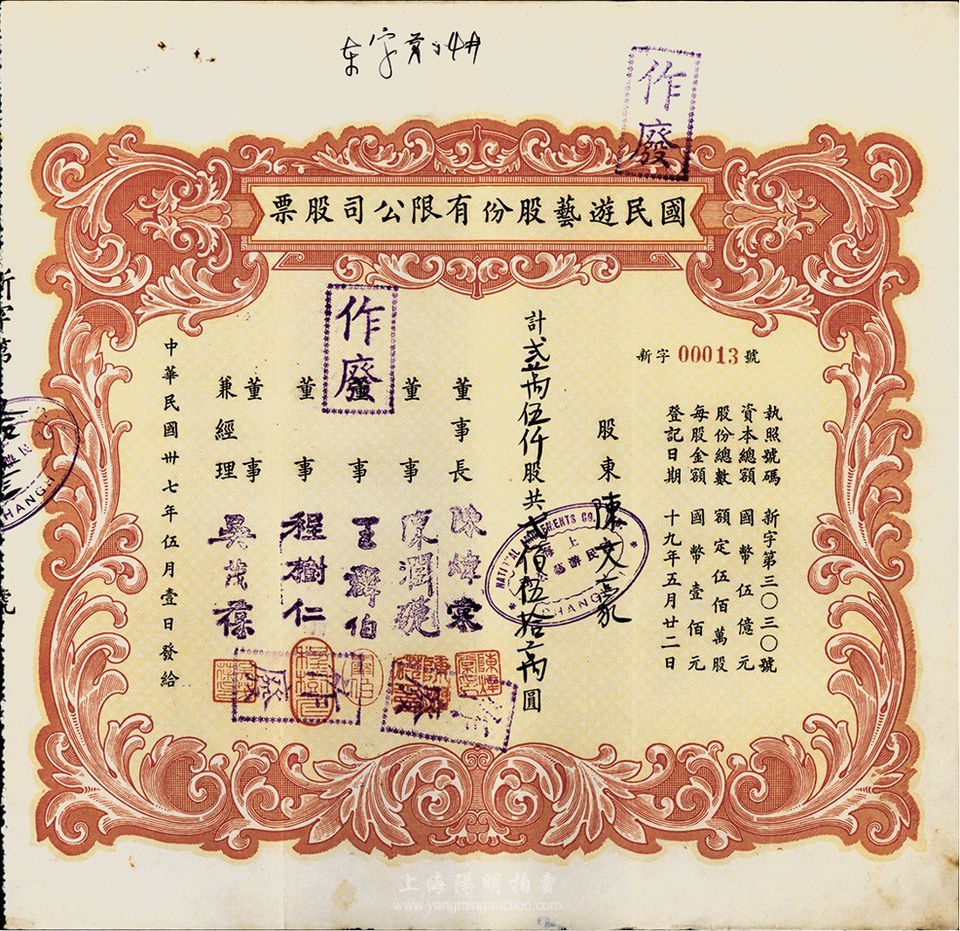 作廢
國民遊藝股份有限公司股票
新字 00013 號
執照號碼 新字第三〇三〇號
資本總額 國幣伍億元
股份總數 額定伍佰萬股
每股金額 國幣壹佰元
登記日期 十九年五月廿二日
股東 陳文豪
計貳萬伍仟股共貳佰伍拾萬圓
董事長
董事 陳潤琬
董事 王壽伯
董事 程樹仁
董事兼經理 吳茂葆
中華民國卅七年伍月壹日發給
作廢
上海陽明拍賣
www.yangmingauction.com